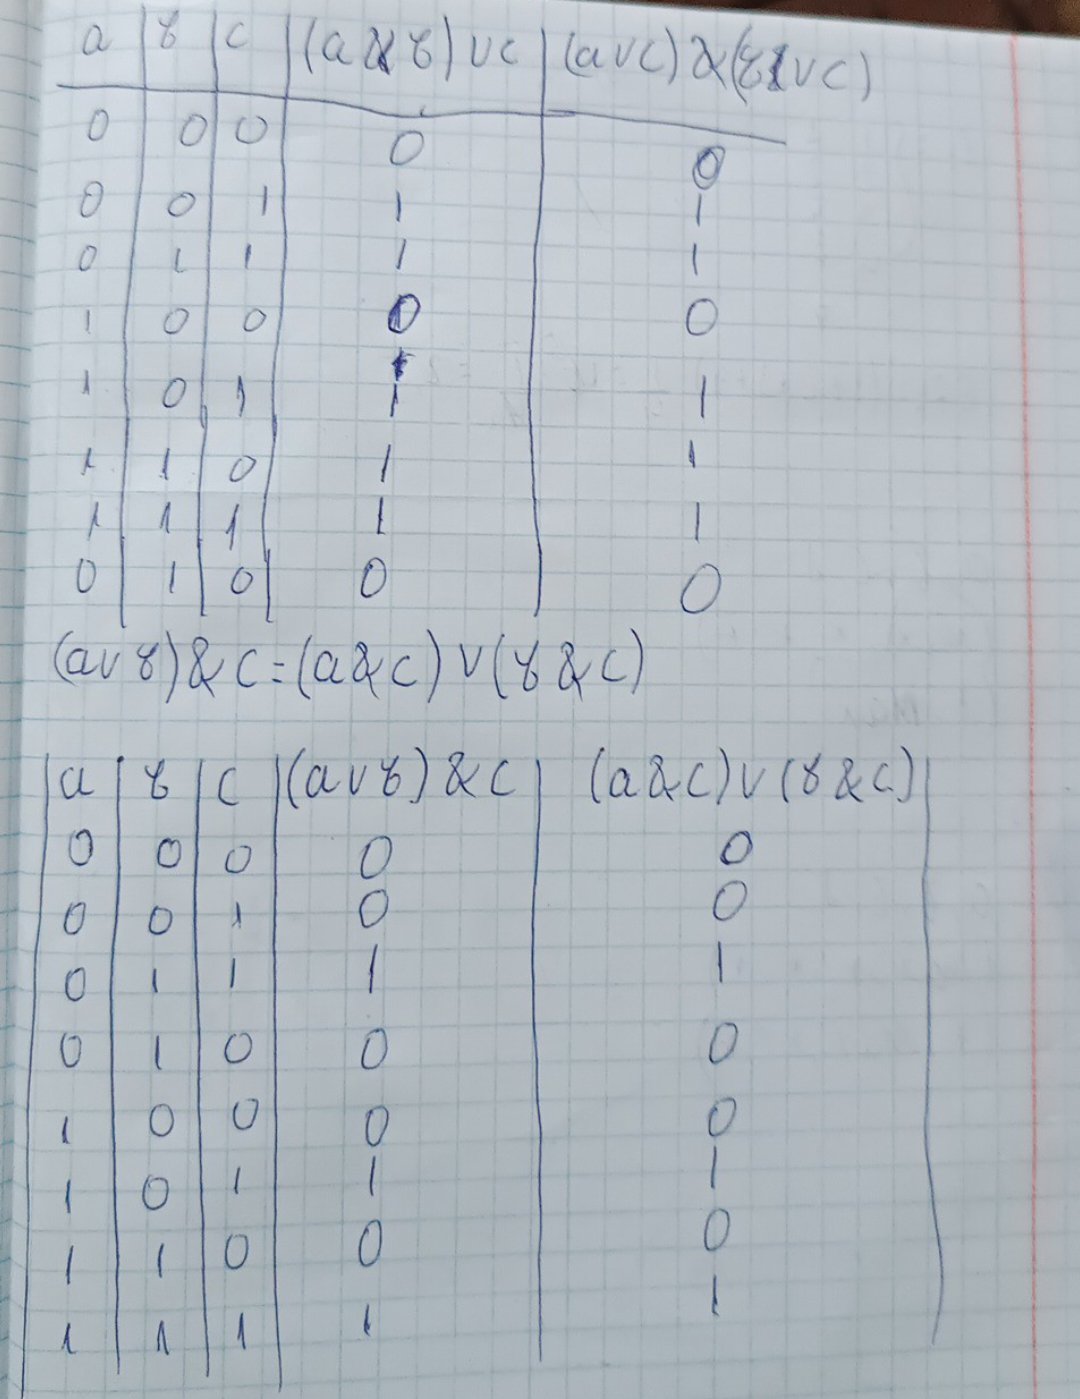 a в c (a & в) ∨ c (a ∨ c) & (в ∨ c)
0 0 0 0 0
0 0 1 1 1
0 1 1 1 1
1 0 0 0 0
1 0 1 1 1
1 1 0 1 1
1 1 1 1 1
0 1 0 0 0
(a ∨ в) & c = (a & c) ∨ (в & c)
a в c (a ∨ в) & c (a & c) ∨ (в & c)
0 0 0 0 0
0 0 1 0 0
0 1 1 1 1
0 1 0 0 0
1 0 0 0 0
1 0 1 1 1
1 1 0 0 0
1 1 1 1 1